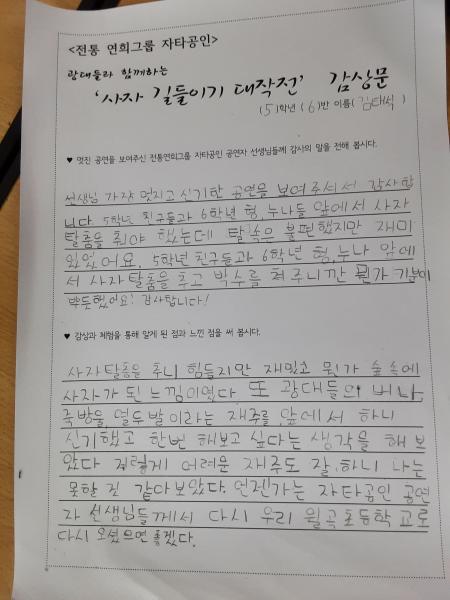 <전통 연희그룹 자타공인>
광대들과 함께하는
'사자 길들이기 대작전' 감상문
(5)학년 (6)반 이름(김태석)
♥ 멋진 공연을 보여주신 전통연희그룹 자타공인 공연자 선생님들께 감사의 말을 전해 봅시다.
선생님 가장 멋지고 신기한 공연을 보여주셔서 감사합
니다. 5학년 친구들과 6학년 형, 누나들 앞에서 사자
탈춤을 춰야 했는데 탈속은 불편했지만 재미
있었어요. 5학년 친구들과 6학년 형, 누나 앞에
서 사자탈춤을 추고 박수를 쳐 주니깐 뭔가 기분이
뿌듯했어요! 감사합니다!
♥ 감상과 체험을 통해 알게 된 점과 느낀 점을 써 봅시다.
사자탈춤을 추니 힘들지만 재밌고 뭔가 숲속에
사자가 된 느낌이였다. 또 광대들의 버나,
죽방울, 열두발이라는 재주를 앞에서 하니
신기했고 한번 해보고 싶다는 생각을 해 보
았다 저렇게 어려운 재주도 잘하니 나는
못할 것 같아보았다. 언젠가는 자타공인 공연
자 선생님들께서 다시 우리 월곡초등학교로
다시 오셨으면 좋겠다.